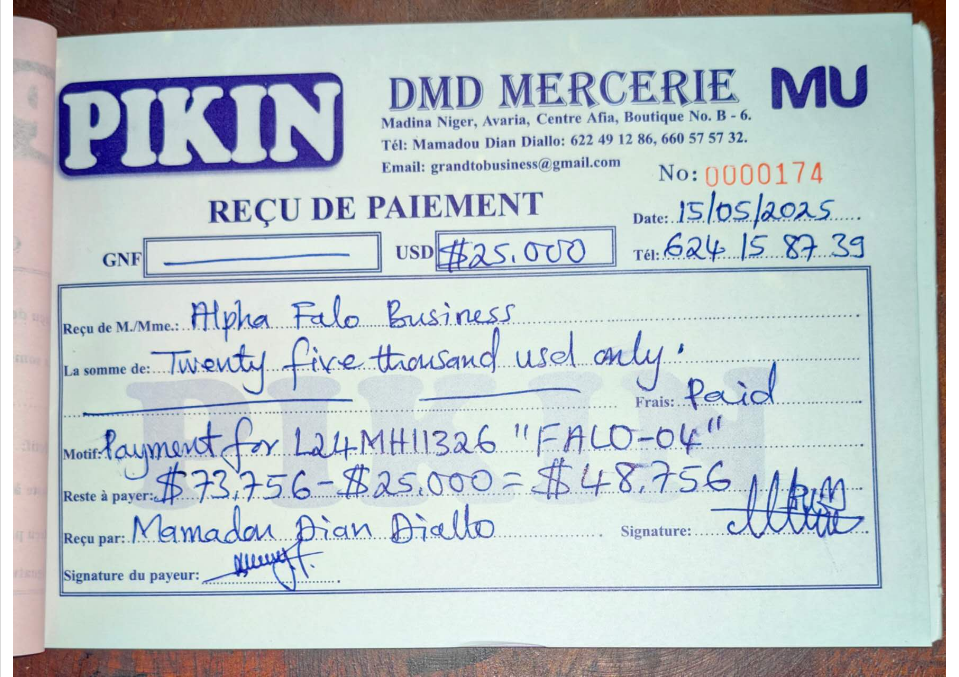 PIKIN
DMD MERCERIE
MU
Madina Niger, Avaria, Centre Afia, Boutique No. B - 6.
Tél: Mamadou Dian Diallo: 622 49 12 86, 660 57 57 32.
Email: grandtobusiness@gmail.com
No: 0000174
REÇU DE PAIEMENT
Date: 15/05/2025
GNF
USD $25.000
Tél: 624 15 87 39
Reçu de M./Mme.: Alpha Falo Business
La somme de: Twenty five thousand usd only.
Frais: Paid
Motif: Payment for L24MH11326 "FALO-04"
Reste à payer: $73,756-$25.000 = $48.756
Reçu par: Mamadou Dian Diallo
Signature:
Signature du payeur:
PIKIN